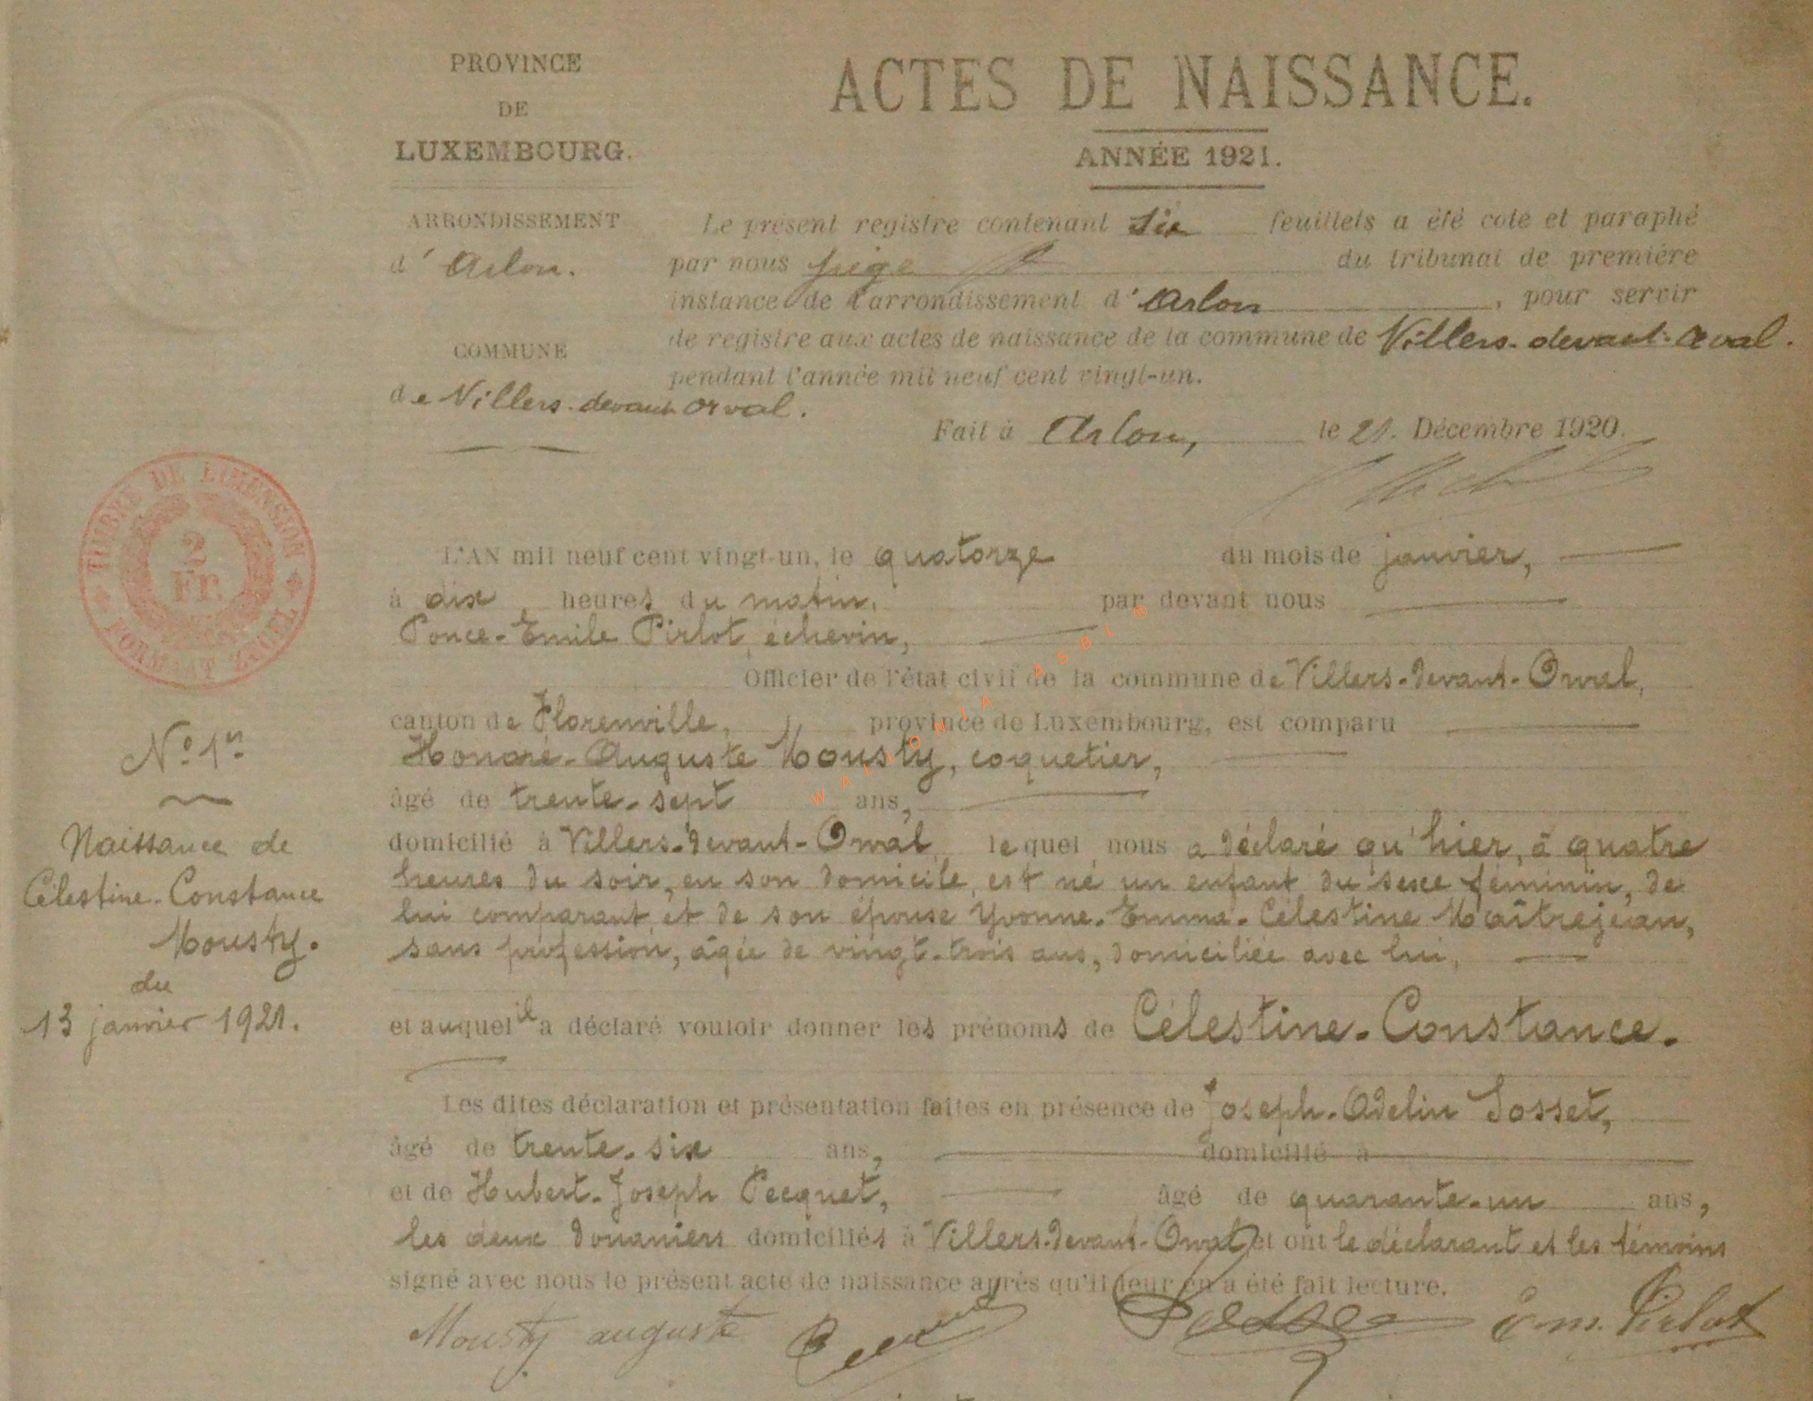 PROVINCE
DE
LUXEMBOURG.
ARRONDISSEMENT
d' Arlon.
COMMUNE
de Villers-devant-Orval.
ACTES DE NAISSANCE.
ANNÉE 1921.
Le présent registre contenant six feuillets a été coté et paraphé
par nous juge du tribunal de première
instance de l'arrondissement d' Arlon, pour servir
de registre aux actes de naissance de la commune de Villers-devant-Orval.
pendant l'année mil neuf cent vingt-un.
Fait à Arlon, le 21. Décembre 1920.
TIMBRE DE DIMENSION
2
Fr.
FORMAAT ZEGEL
No 1er
Naissance de
Célestine-Constance
Mousty.
du
13 janvier 1921.
L'AN mil neuf cent vingt-un, le quatorze du mois de janvier,
à dix heures du matin, par devant nous
Ponce-Emile Pirlot, échevin,
Officier de l'état civil de la commune de Villers-devant-Orval,
canton de Florenville, province de Luxembourg, est comparu
Honoré-Auguste Mousty, coquetier,
âgé de trente-sept ans,
domicilié à Villers-devant-Orval, lequel nous a déclaré qu'hier, à quatre
heures du soir, en son domicile, est né un enfant du sexe féminin, de
lui comparant et de son épouse Yvonne-Emma-Célestine Maîtrejean,
sans profession, âgée de vingt-trois ans, domiciliée avec lui,
et auquel il a déclaré vouloir donner les prénoms de Célestine-Constance.
Les dites déclaration et présentation faites en présence de Joseph-Adelin Sosset,
âgé de trente-six ans, domicilié à
et de Hubert-Joseph Pecquet, âgé de quarante-un ans,
les deux douaniers domiciliés à Villers-devant-Orval, et ont le déclarant et les témoins
signé avec nous le présent acte de naissance après qu'il leur en a été fait lecture.
Mousty auguste Em. Pirlot
WALLONIA ASBL ©